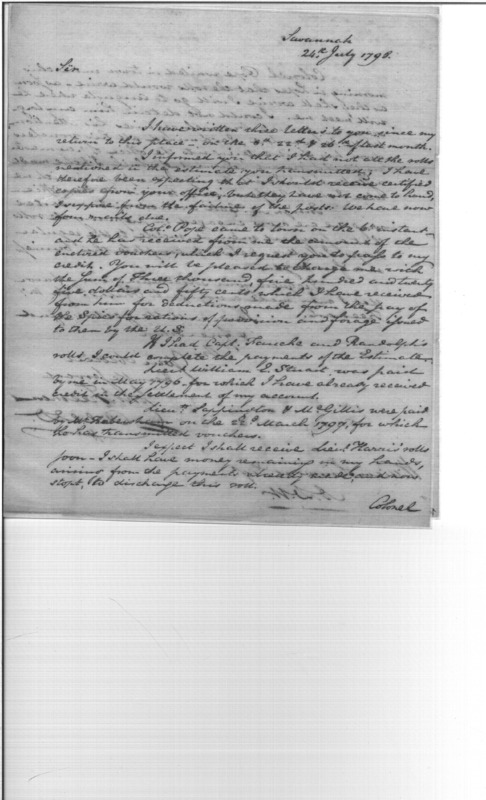 Savannah
24th July 1798.
Sir
I have written three letters to you, since my
return to this place - on the 4th 22d & 26th of last month.
I informed you that I had not all the rolls
mentioned in the estimate you transmitted; I have
therefore been expecting that I should receive certified
copies from your office, but they have not come to hand,
I suppose from the failure of the posts. We have now
four mails due.
Col. Pope came to town on the 6th instant
and he has received from me the amount of the
enclosed vouchers, which I request you to pass to my
credit. You will be pleased to charge me with
the sum of Three thousand five hundred and twenty
five dollars and fifty cents which I have received
from him for deductions made from the pay of
the Spies for rations of provision and forage issued
to them by the U.S.
If I had Capt. and Randolph's
rolls, I could complete the payments of the Estimate.
Lieut. William E. Stuart was paid
by me in May 1796. for which I have already received
credit in the settlement of my account.
Lieuts. Sappington & McGillis were paid
by Mr. Habersham on the 22d March 1797, for which
he has transmitted vouchers.
I expect I shall receive Lieut. Harris' rolls
soon - I shall have money remaining in my hands,
arising from the payments already made and now
stopt, to discharge this roll.
Colonel